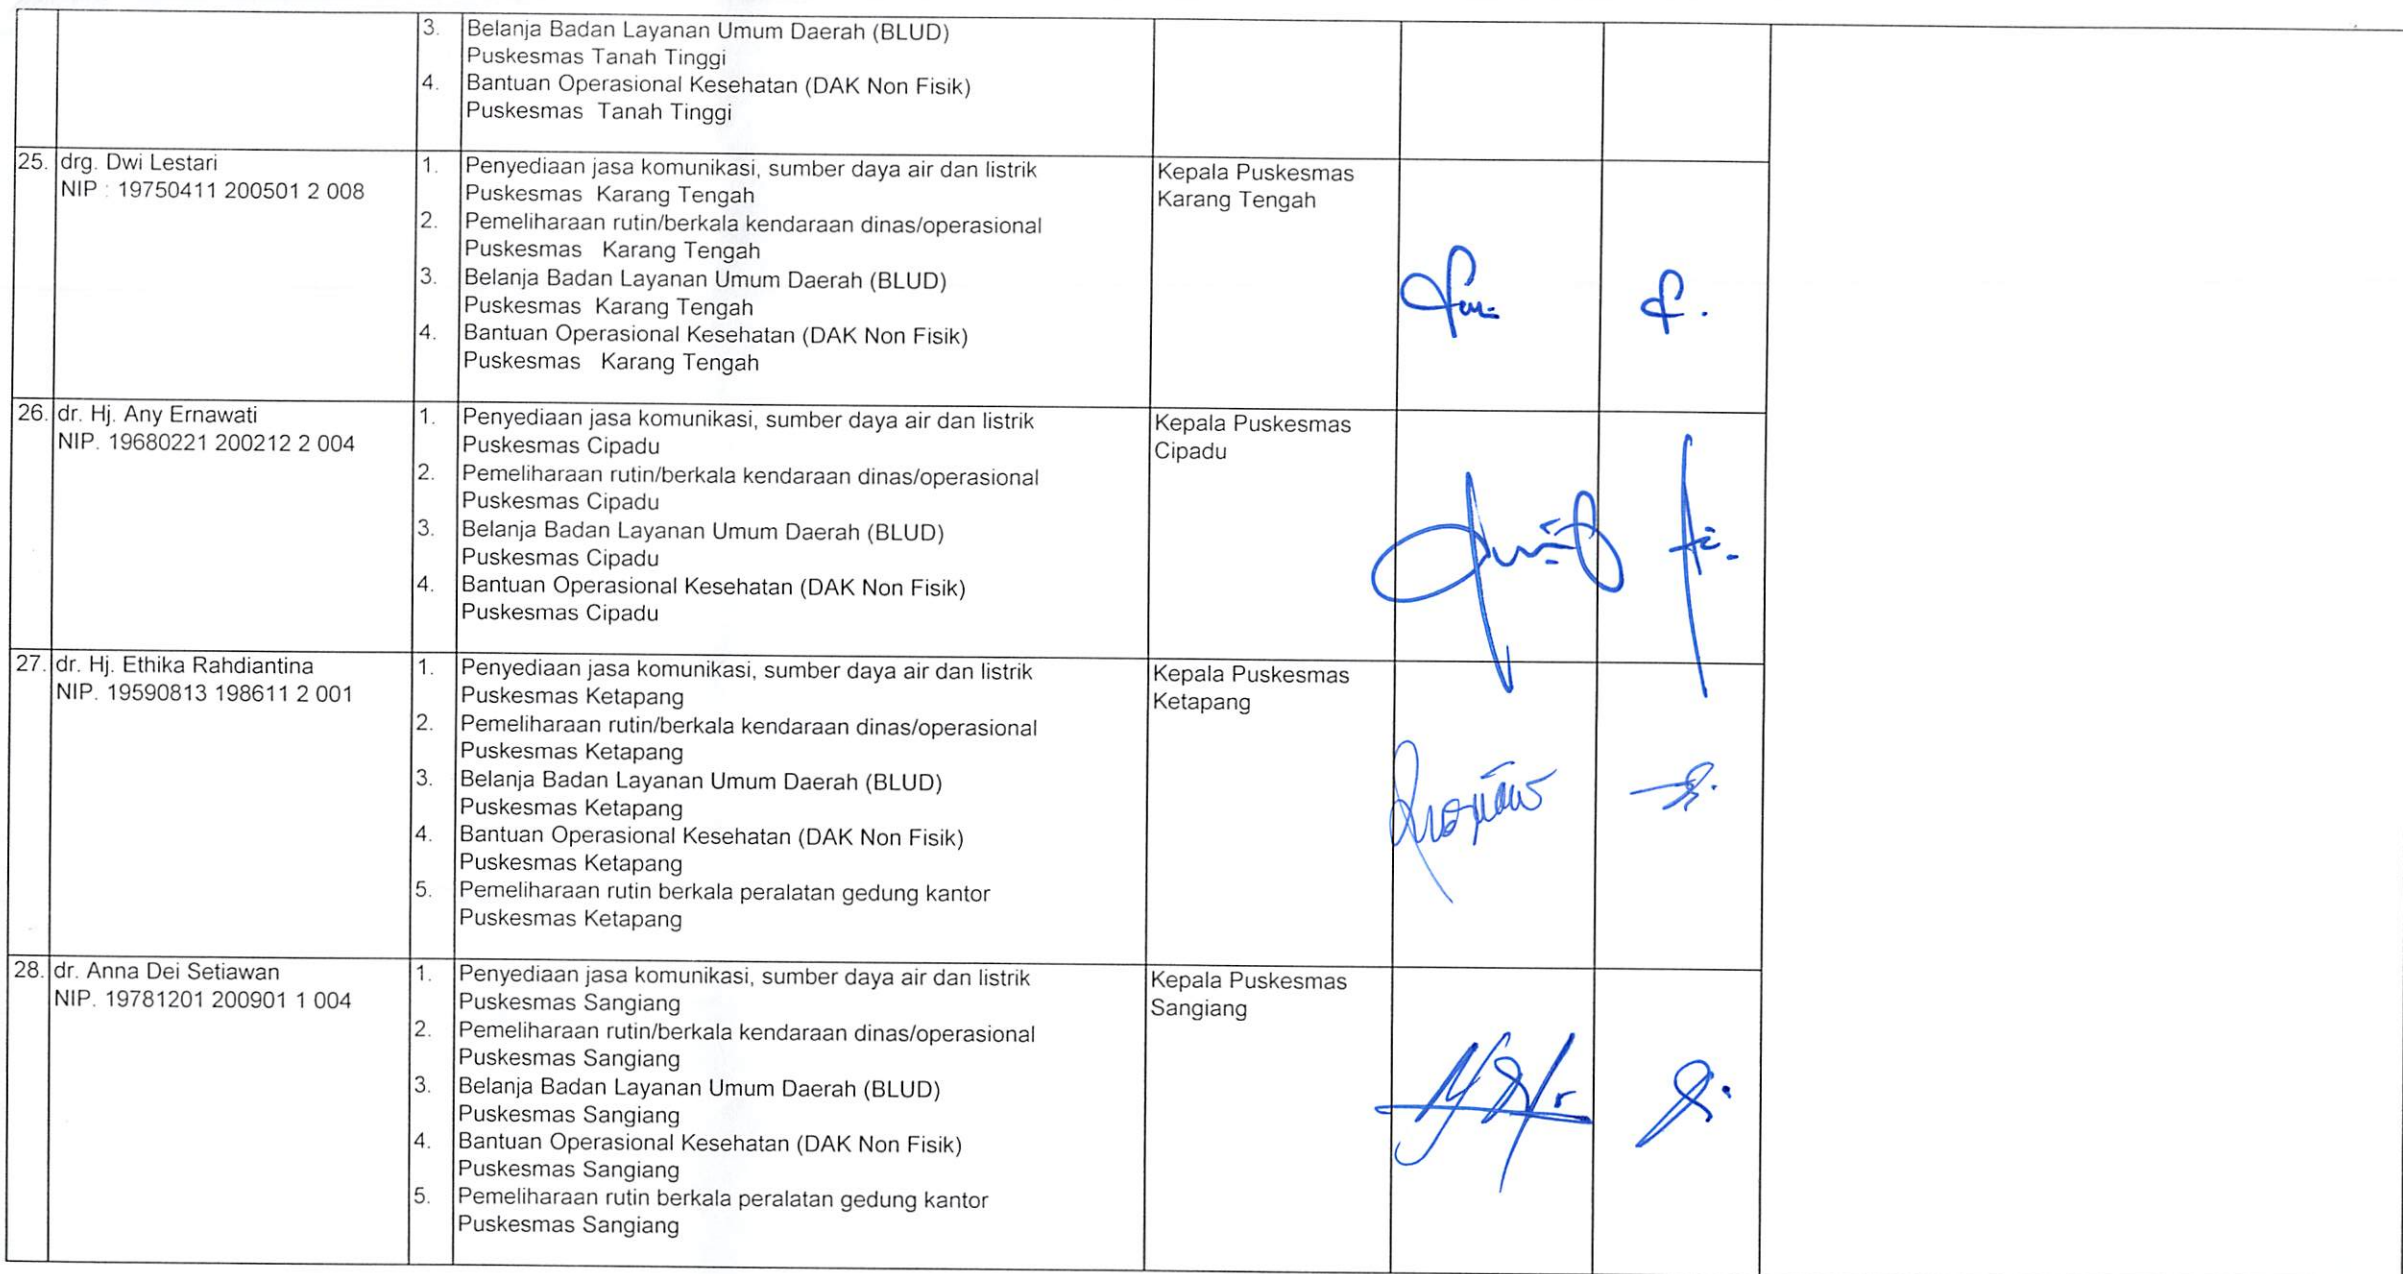 3. Belanja Badan Layanan Umum Daerah (BLUD)
Puskesmas Tanah Tinggi
4. Bantuan Operasional Kesehatan (DAK Non Fisik)
Puskesmas Tanah Tinggi
25. drg. Dwi Lestari
NIP : 19750411 200501 2 008
1. Penyediaan jasa komunikasi, sumber daya air dan listrik
Puskesmas Karang Tengah
2. Pemeliharaan rutin/berkala kendaraan dinas/operasional
Puskesmas Karang Tengah
3. Belanja Badan Layanan Umum Daerah (BLUD)
Puskesmas Karang Tengah
4. Bantuan Operasional Kesehatan (DAK Non Fisik)
Puskesmas Karang Tengah
Kepala Puskesmas
Karang Tengah
26. dr. Hj. Any Ernawati
NIP. 19680221 200212 2 004
1. Penyediaan jasa komunikasi, sumber daya air dan listrik
Puskesmas Cipadu
2. Pemeliharaan rutin/berkala kendaraan dinas/operasional
Puskesmas Cipadu
3. Belanja Badan Layanan Umum Daerah (BLUD)
Puskesmas Cipadu
4. Bantuan Operasional Kesehatan (DAK Non Fisik)
Puskesmas Cipadu
Kepala Puskesmas
Cipadu
27. dr. Hj. Ethika Rahdiantina
NIP. 19590813 198611 2 001
1. Penyediaan jasa komunikasi, sumber daya air dan listrik
Puskesmas Ketapang
2. Pemeliharaan rutin/berkala kendaraan dinas/operasional
Puskesmas Ketapang
3. Belanja Badan Layanan Umum Daerah (BLUD)
Puskesmas Ketapang
4. Bantuan Operasional Kesehatan (DAK Non Fisik)
Puskesmas Ketapang
5. Pemeliharaan rutin berkala peralatan gedung kantor
Puskesmas Ketapang
Kepala Puskesmas
Ketapang
28. dr. Anna Dei Setiawan
NIP. 19781201 200901 1 004
1. Penyediaan jasa komunikasi, sumber daya air dan listrik
Puskesmas Sangiang
2. Pemeliharaan rutin/berkala kendaraan dinas/operasional
Puskesmas Sangiang
3. Belanja Badan Layanan Umum Daerah (BLUD)
Puskesmas Sangiang
4. Bantuan Operasional Kesehatan (DAK Non Fisik)
Puskesmas Sangiang
5. Pemeliharaan rutin berkala peralatan gedung kantor
Puskesmas Sangiang
Kepala Puskesmas
Sangiang